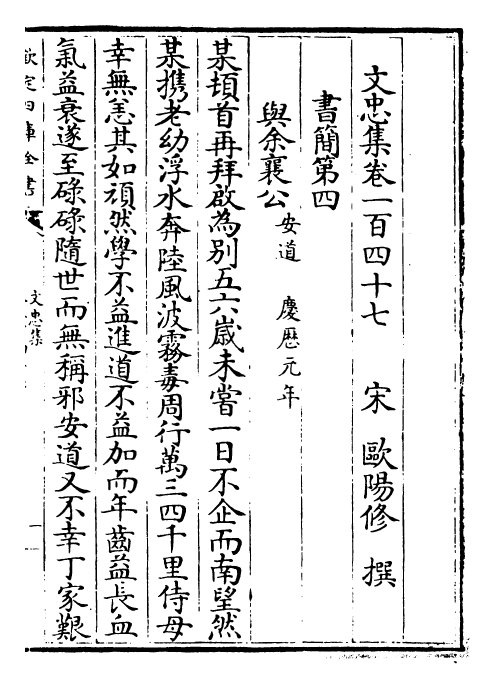 文忠集卷一百四十七　宋　歐陽修　撰
書簡第四
與余襄公安道　慶厯元年
某頓首再拜啟為別五六嵗未嘗一日不企而南望然
某攜老幼浮水奔陸風波霧毒周行萬三四千里侍母
幸無恙其如頑然學不益進道不益加而年齒益長血
氣益衰遂至碌碌隨世而無稱邪安道又不幸丁家艱
欽定四庫全書
文忠集
一